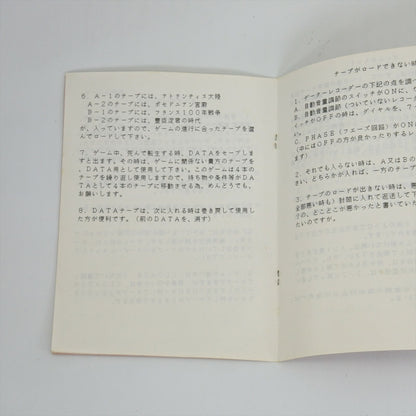 6．A－1のテープには、アトランティス大陸
A－2のテープには、ポセドニアン宮殿
B－1のテープには、フランス100年戦争
B－2のテープには、豊臣淀君の時代
が、入っていますので、ゲームの進行に合ったテープを選
んでロードして下さい。
7．ゲーム中、死んで転生する時、DATAをセーブしま
すと出ます。その時は、ゲームに関係ない貴方のテープを
、DATA用として使用して下さい。このゲームは4本の
テープを繰り返し使用しますので、持ち物や条件等がDA
TAとして4本のテープに移動させる為、めんどうでも、
お願いします。
8．DATAテープは、次に入れる時は巻き戻して使用し
た方が便利です。（前のDATAを、消す）
テープがロードできない時
1．データーレコーダーの下記の点を調べ
A．自動音量調節のスイッチがONに、な
B．自動音量調節（ついていないレコー
イッチがOFFの時は、ダイヤルを、7～
C．PHASE（フェーズ回路）がON
（中にはOFFの方が良かったりするレ
2．それでも入らない時は、A又はBの
さい。どちらかが入れば、一方のテープ
3．テープのロードが出きない時は、悪
全部悪い時も）封筒に入れて返送して下
りの、どことどこが悪かったと書いていた
たいのですが。